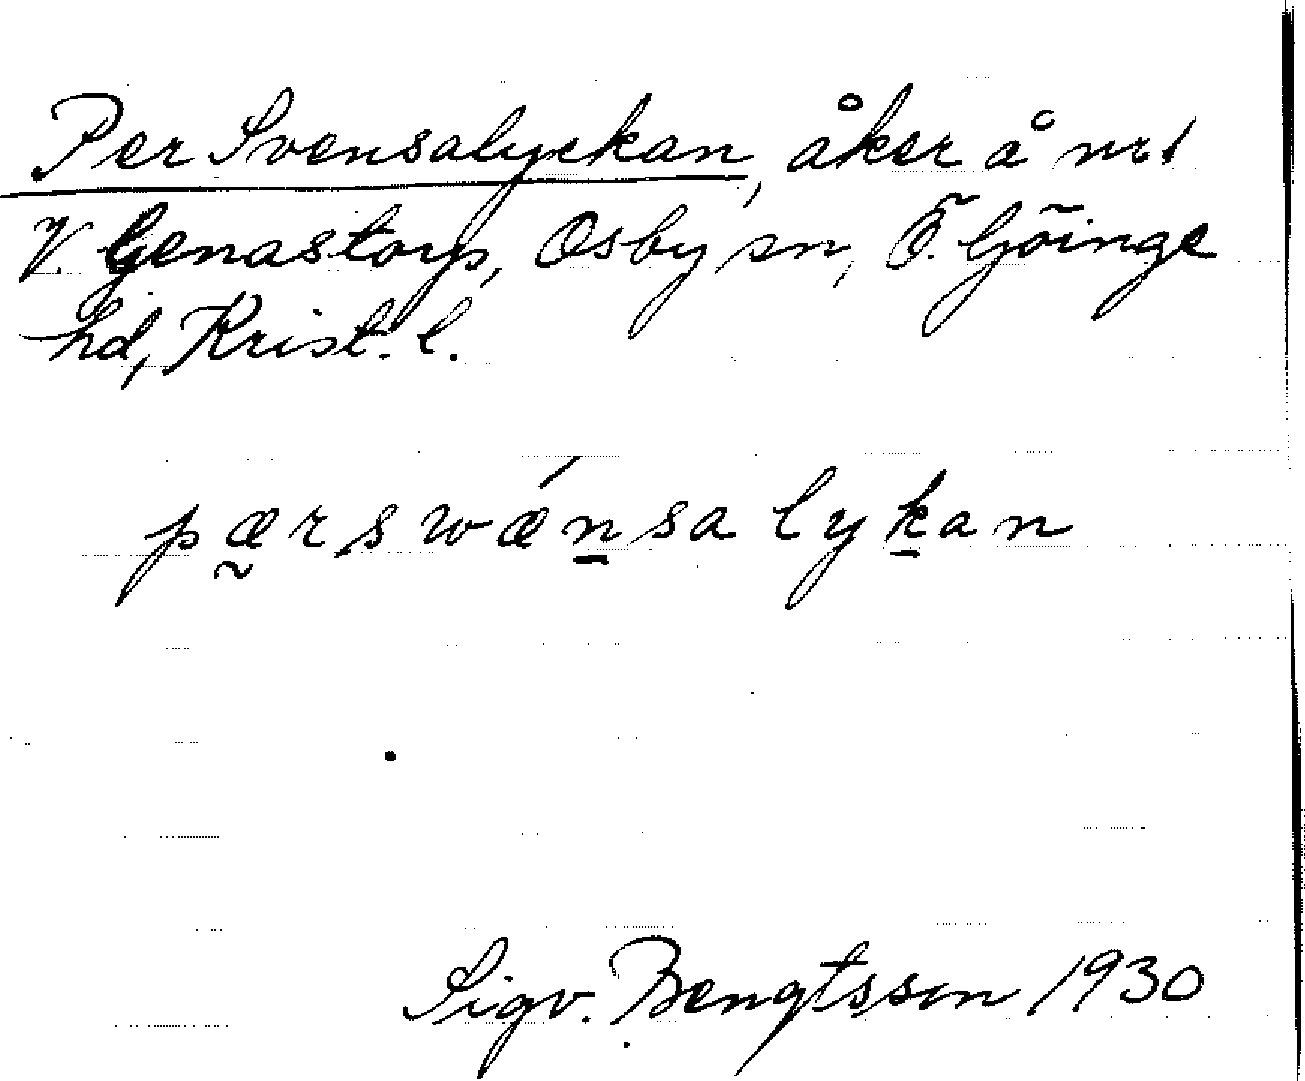 Per Svensalyckan, åker å nr 1
V. Genastorp, Osby sn, Ö. Göinge
hd, Krist. l.
pæ̰rswǽn̲salyk̲an
Sigv. Bengtsson 1930